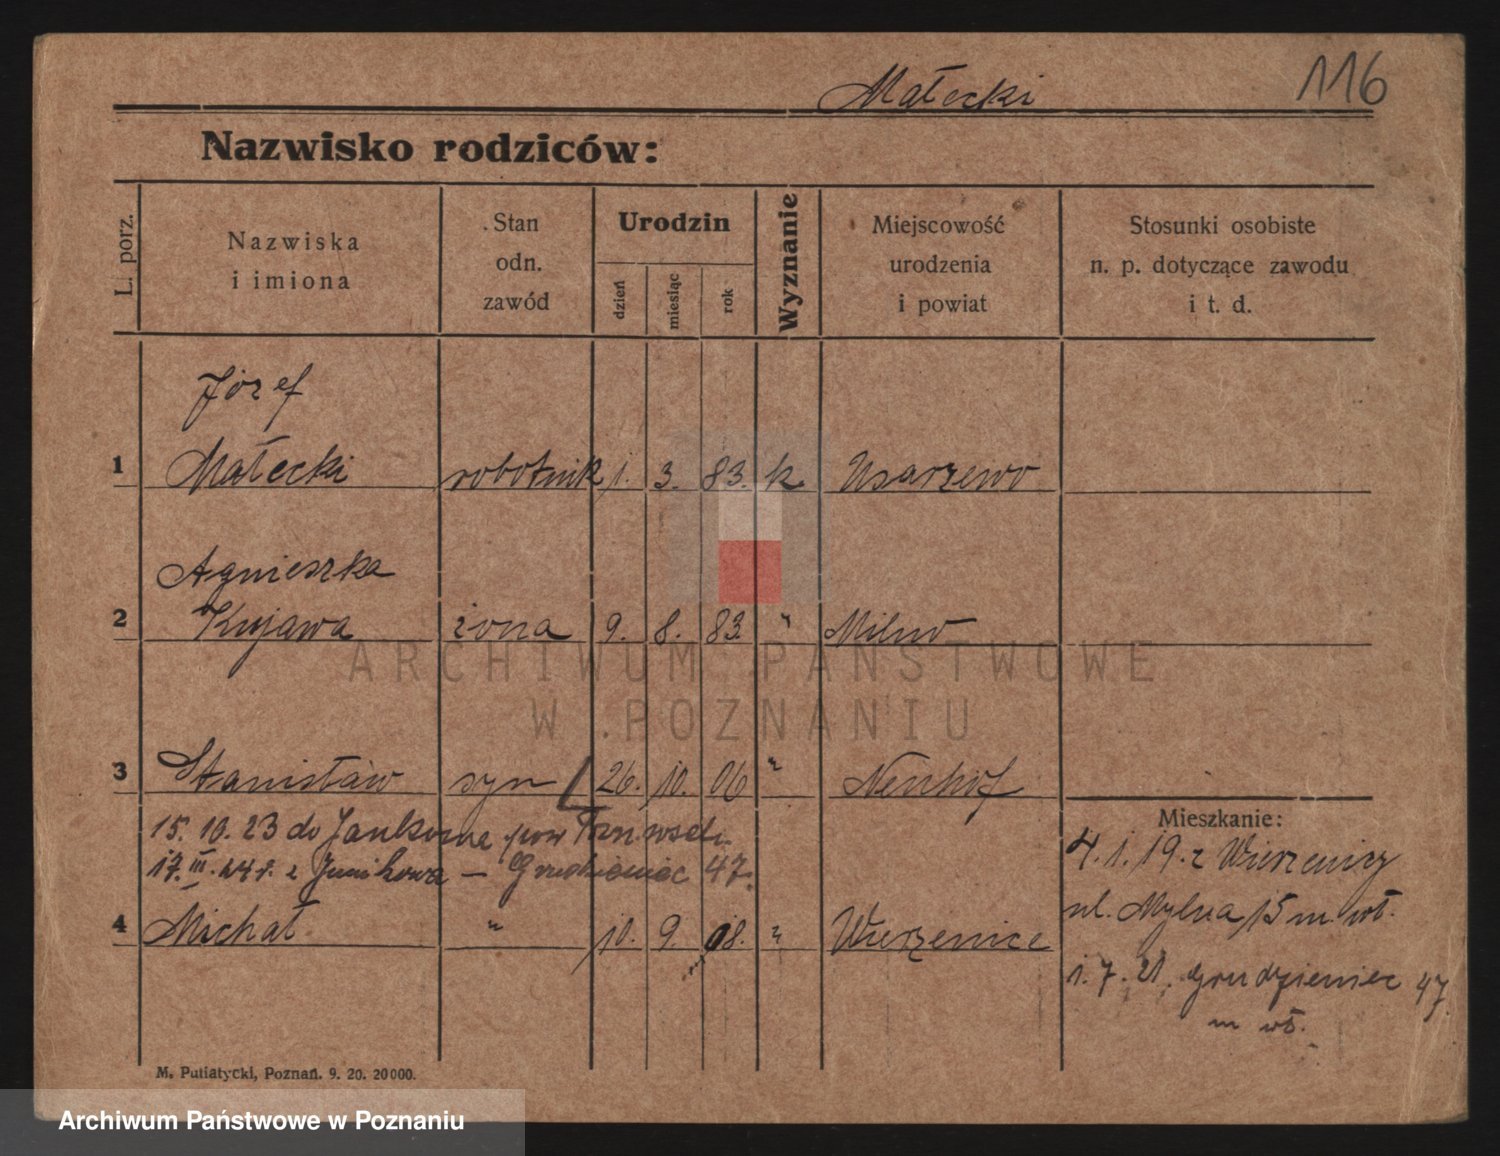 Małecki 116
Nazwisko rodziców:
L. porz.
Nazwiska
i imiona
Stan
odn.
zawód
Urodzin
dzień
miesiąc
rok
Wyznanie
Miejscowość
urodzenia
i powiat
Stosunki osobiste
n. p. dotyczące zawodu
i t. d.
Józef
1 Małecki robotnik 1. 3. 83. k. Usarzewo
Agnieszka
2 Kujawa żona 9. 8. 83. " Milno
ARCHIWUM PAŃSTWOWE
W POZNANIU
3 Stanisław syn 26. 10. 06 " Neuhof
Mieszkanie:
15. 10. 23 do pow
17. III. 24 r. z Junikowa – Grudzieniec 47.
4 Michał " 10. 9. 08. " Wierzenice
4. 1. 19. z Wierzenicy
ul. Mylna 15 m. wł.
1. 7. 21. Grudzieniec 47
m wł.
M. Putiatycki, Poznań. 9. 20. 20000.
Archiwum Państwowe w Poznaniu